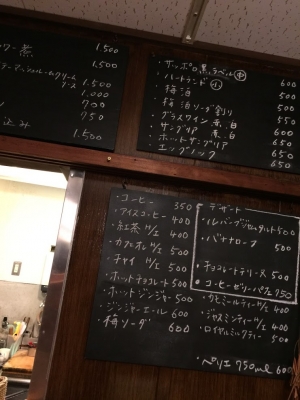 煮 1.500
マッシュルームクリーム
ソース 1.500
1.000
700
750
込み 1.500
・サッポロ黒ラベル 中 600
・ハートランド 小 500
・梅酒 500
・梅酒ソーダ割り 550
・グラスワイン 赤、白 500
・サングリア 赤 白 600
・ホットサングリア 650
・エッグノッグ 650
・コーヒー 350
・アイスコーヒー 400
・紅茶 H/I 400
・カフェオレ H/I 500
・チャイ H/I 500
・ホットチョコレート 500
・ホットジンジャー 500
・ジンジャーエール 600
・梅ソーダ 600
・デザート
・バナナロープ 500
・チョコレートテリーヌ 500
・コーヒーゼリーパフェ 750
・カモミールティー H/I 400
・ジャスミンティー H/I 400
・ロイヤルミルクティー 500
・ペリエ 750ml 600